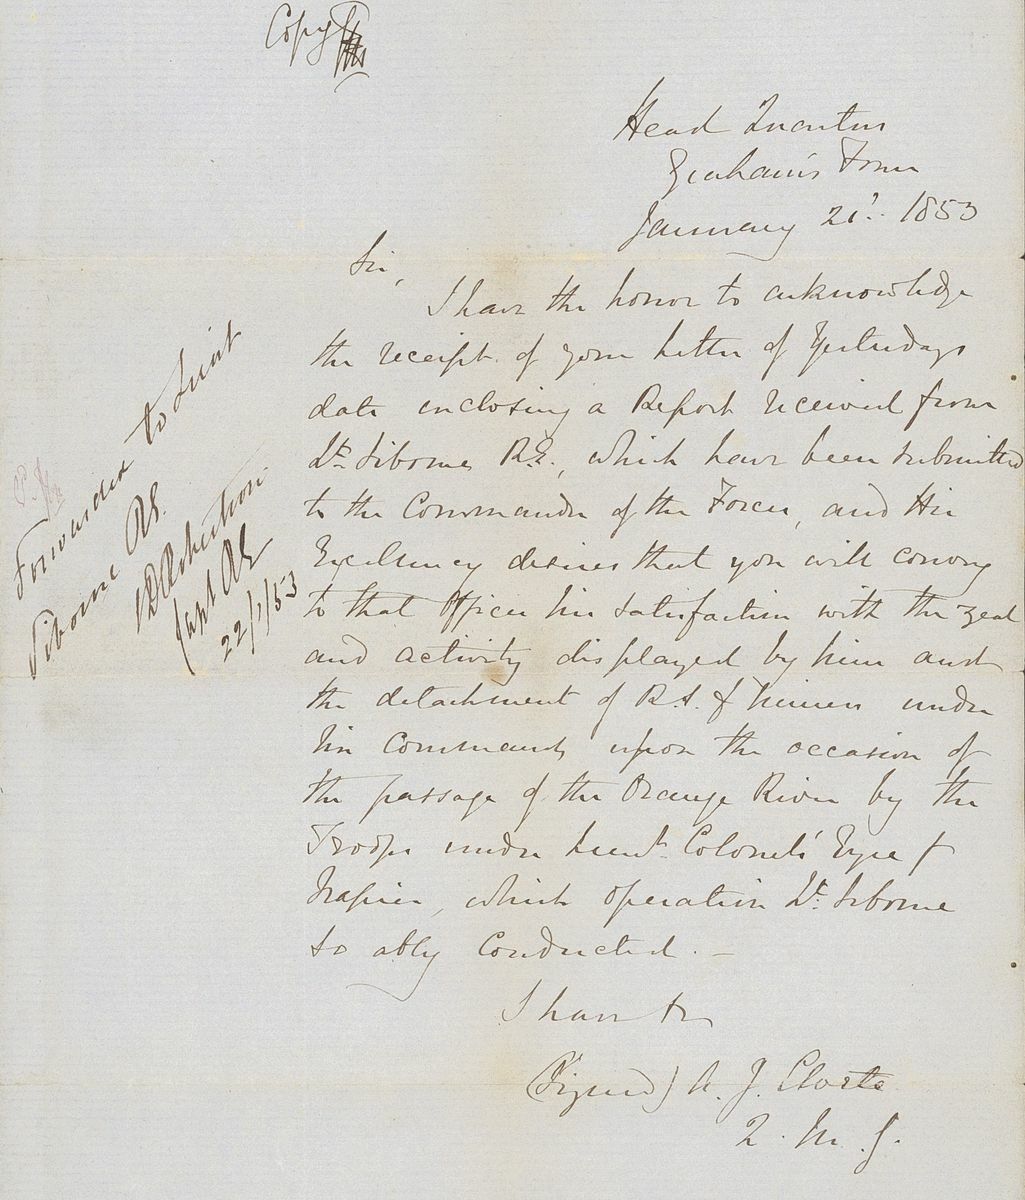 Copy
Head Quarters
Graham's Town
January 21st. 1853
Sir,
I have the honor to acknowledge
the receipt of your letter of Yesterdays
date enclosing a Report received from
Lt. Siborne R.E., which have been submitted
to the Commander of the Forces, and His
Excellency desires that you will convey
to that Officer his satisfaction with the zeal
and activity displayed by him and
the detachment of R.S. & Miners under
his Command, upon the occasion of
the passage of the Orange River by the
Troops under Lieut. Colonels' Eyre &
Napier, which operation Lt. Siborne
so ably Conducted. —
I have &c
(Signed) A. J. Cloete
Q. M. G.
Forwarded to Lieut
Siborne RE.
Robertson
Capt RE
22/1/53